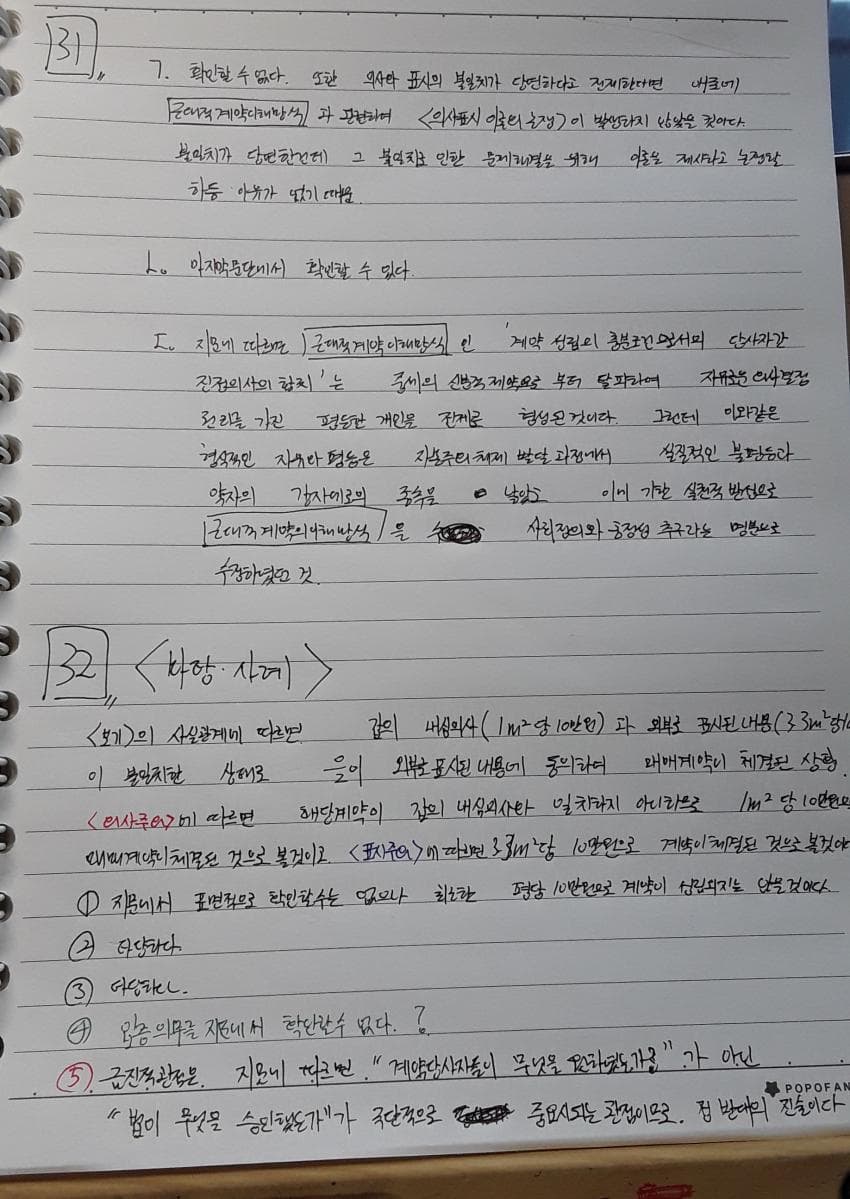 31
ㄱ. 확인할 수 없다. 또한 의사와 표시의 불일치가 당연하다고 전제한다면 애초에
근대적계약이해방식 과 관련하여 <의사표시 이론의 논쟁>이 발생하지 않았을 것이다.
불일치가 당연한건데 그 불일치로 인한 문제해결을 위해 이론을 제시하고 논쟁할
하등 이유가 없기 때문.
ㄴ. 마지막문단에서 확인할 수 있다.
ㄷ. 지문에 따르면 근대적계약이해방식 인 '계약 성립의 충분조건으로서의 당사자간
진정의사의 합치'는 중세의 신분적제약으로 부터 탈피하여 자유로운 의사결정
권리를 가진 평등한 개인을 전제로 형성된것이다. 그런데 이와같은
형식적인 자유와 평등은 자본주의체제 발달 과정에서 실질적인 불평등과
약자의 강자에로의 종속을 낳았고 이에 기한 실천적 반성으로
근대적계약의이해방식 을 사회정의와 공정성 추구라는 명분으로
수정하였던 것.
32 <사항·사례>
<보기>의 사실관계에 따르면 갑의 내심의사(1m²당 10만원)과 외부로 표시된내용(3.3m²당10
이 불일치한 상태로 을이 외부로표시된내용에 동의하여 매매계약이 체결된 상황.
<의사주의>에 따르면 해당계약이 갑의 내심의사와 일치하지 아니하므로 1m²당 10만원의
매매계약이체결된 것으로 볼것이고 <표시주의>에 따르면 3.3m²당 10만원으로 계약이체결된 것으로 볼것이다
① 지문에서 표면적으로 확인할수는 없으나 최소한 평당 10만원으로 계약이 성립되지는 않을것이다.
② 타당하다.
③ 타당하다.
④ 입증의무를 지문에서 확인할수 없다. ?
⑤ 급진적관점은 지문에 따르면. "계약당사자들이 무엇을 원하였는가을"가 아닌
"법이 무엇을 승인했는가"가 극단적으로 중요시되는 관점이므로. 정 반대의 진술이다
POPOFAN